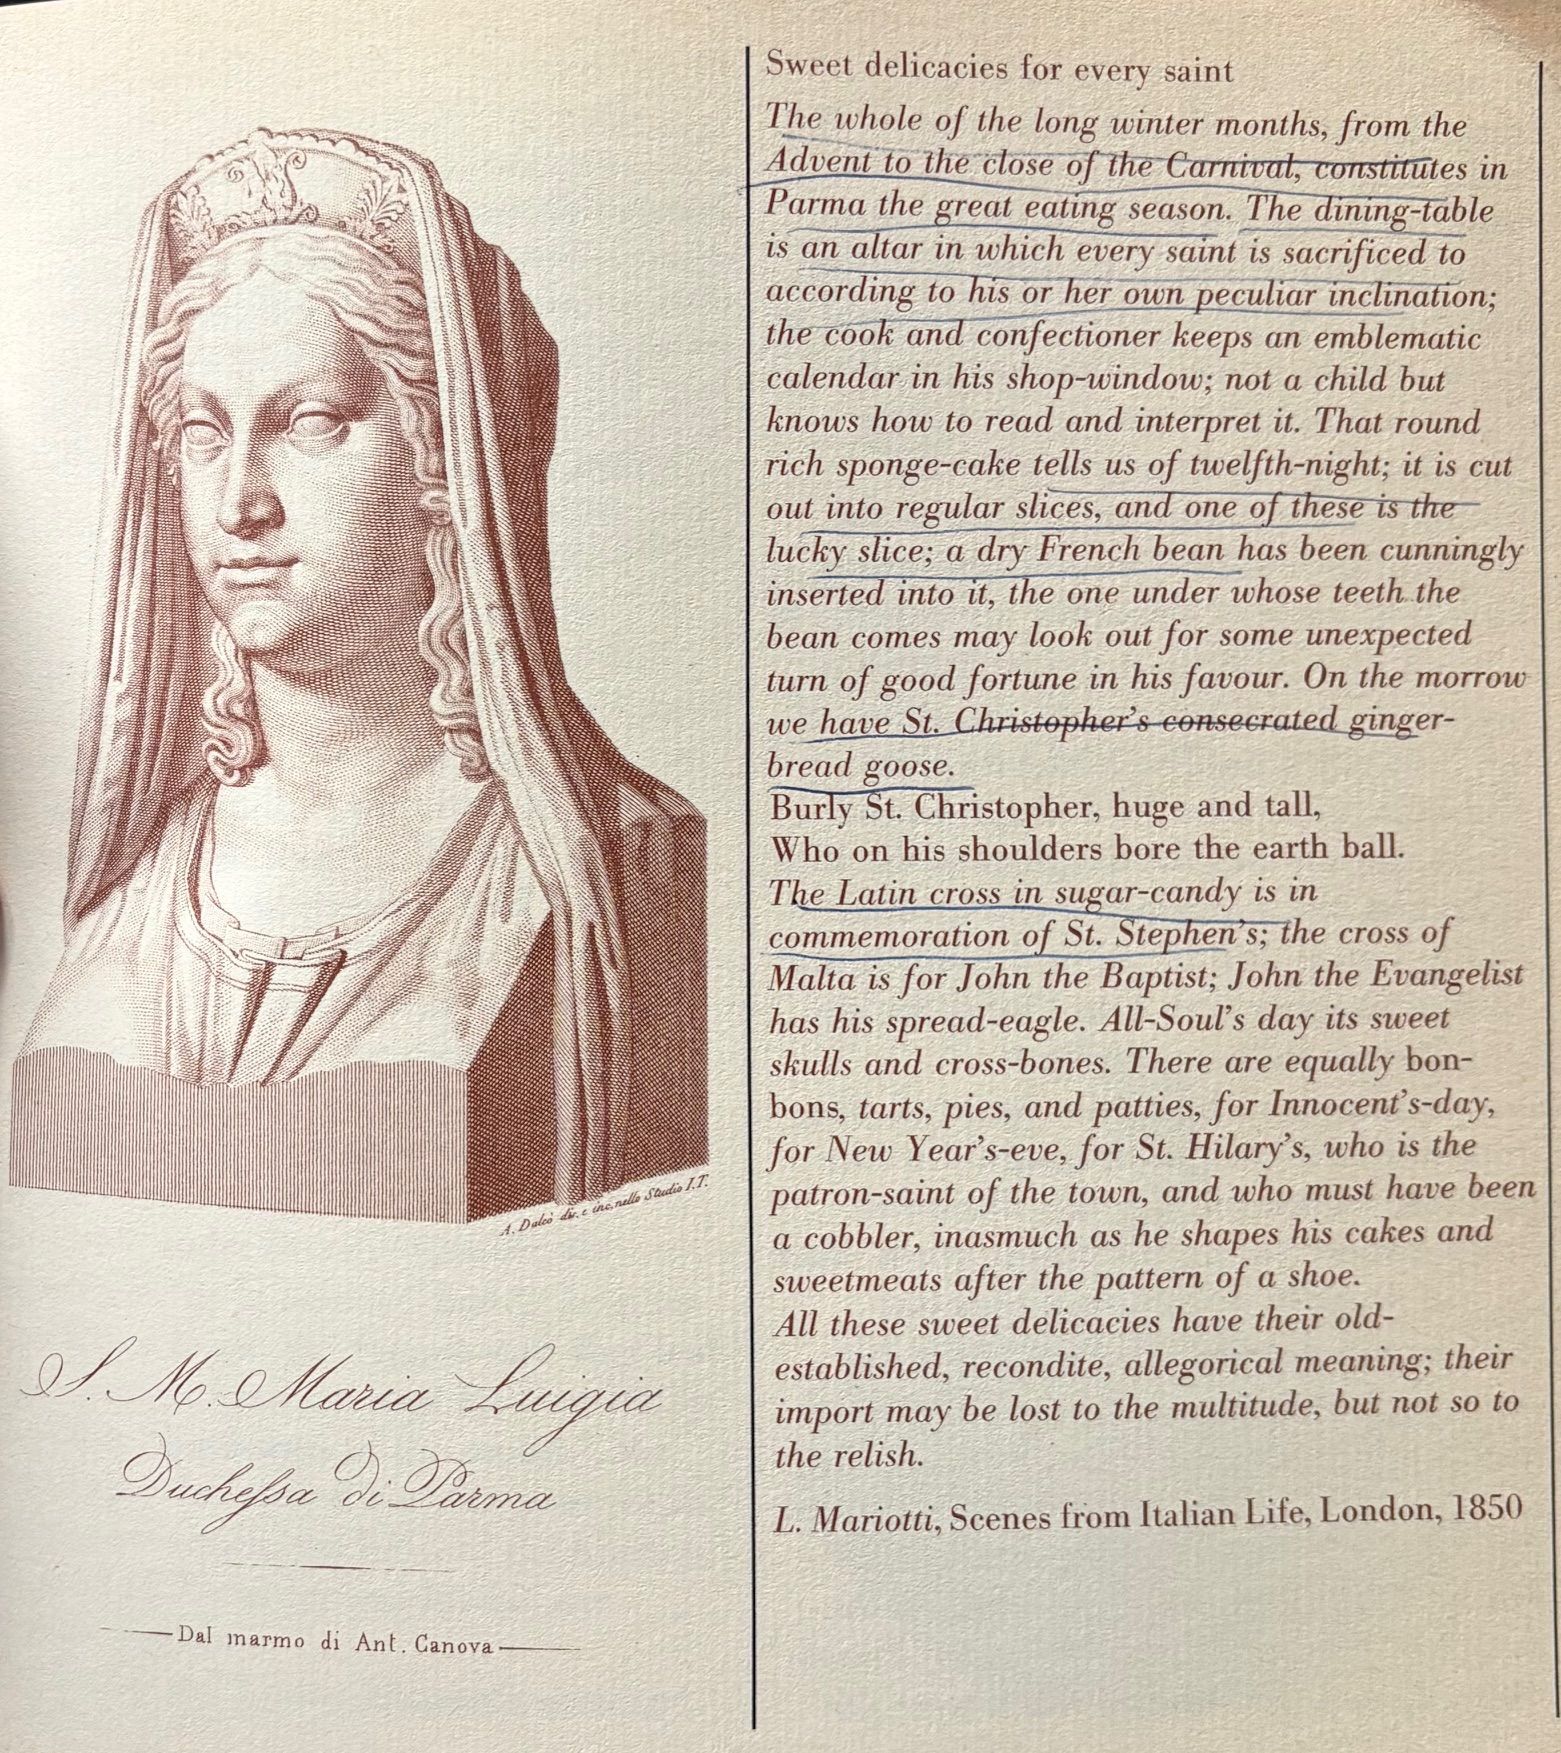 A. Dalcò dis. e inc. nello Studio I.T.
S. M. Maria Luigia
Duchessa di Parma
Dal marmo di Ant. Canova
Sweet delicacies for every saint
The whole of the long winter months, from the
Advent to the close of the Carnival, constitutes in
Parma the great eating season. The dining-table
is an altar in which every saint is sacrificed to
according to his or her own peculiar inclination;
the cook and confectioner keeps an emblematic
calendar in his shop-window; not a child but
knows how to read and interpret it. That round
rich sponge-cake tells us of twelfth-night; it is cut
out into regular slices, and one of these is the
lucky slice; a dry French bean has been cunningly
inserted into it, the one under whose teeth the
bean comes may look out for some unexpected
turn of good fortune in his favour. On the morrow
we have St. Christopher's consecrated ginger-
bread goose.
Burly St. Christopher, huge and tall,
Who on his shoulders bore the earth ball.
The Latin cross in sugar-candy is in
commemoration of St. Stephen's; the cross of
Malta is for John the Baptist; John the Evangelist
has his spread-eagle. All-Soul's day its sweet
skulls and cross-bones. There are equally bon-
bons, tarts, pies, and patties, for Innocent's-day,
for New Year's-eve, for St. Hilary's, who is the
patron-saint of the town, and who must have been
a cobbler, inasmuch as he shapes his cakes and
sweetmeats after the pattern of a shoe.
All these sweet delicacies have their old-
established, recondite, allegorical meaning; their
import may be lost to the multitude, but not so to
the relish.
L. Mariotti, Scenes from Italian Life, London, 1850